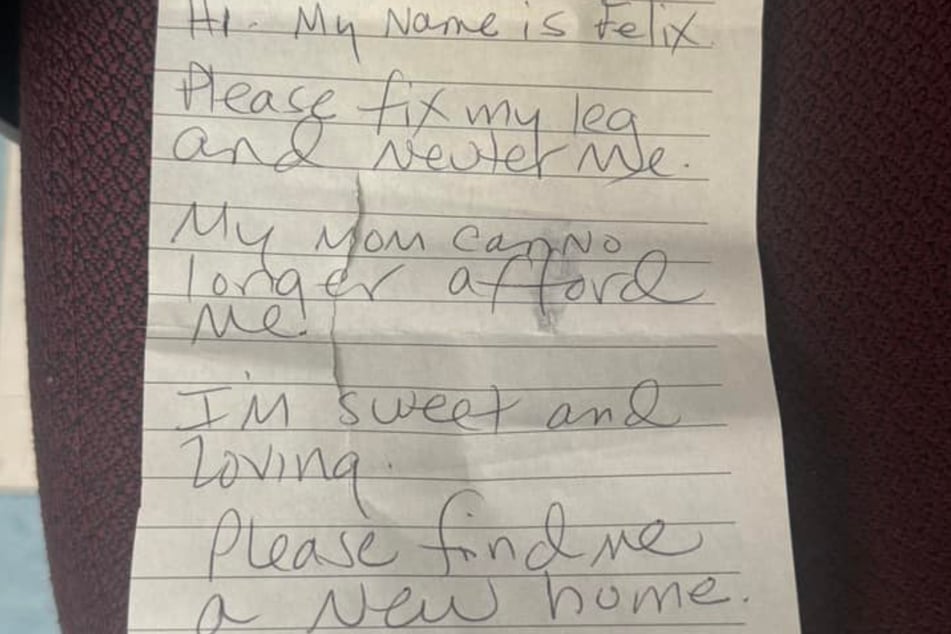 Hi. My Name is Felix.
Please fix my leg
and Neuter Me.
My Mom can No
longer afford
Me!
I'M sweet and
Loving.
Please find me
a New home.